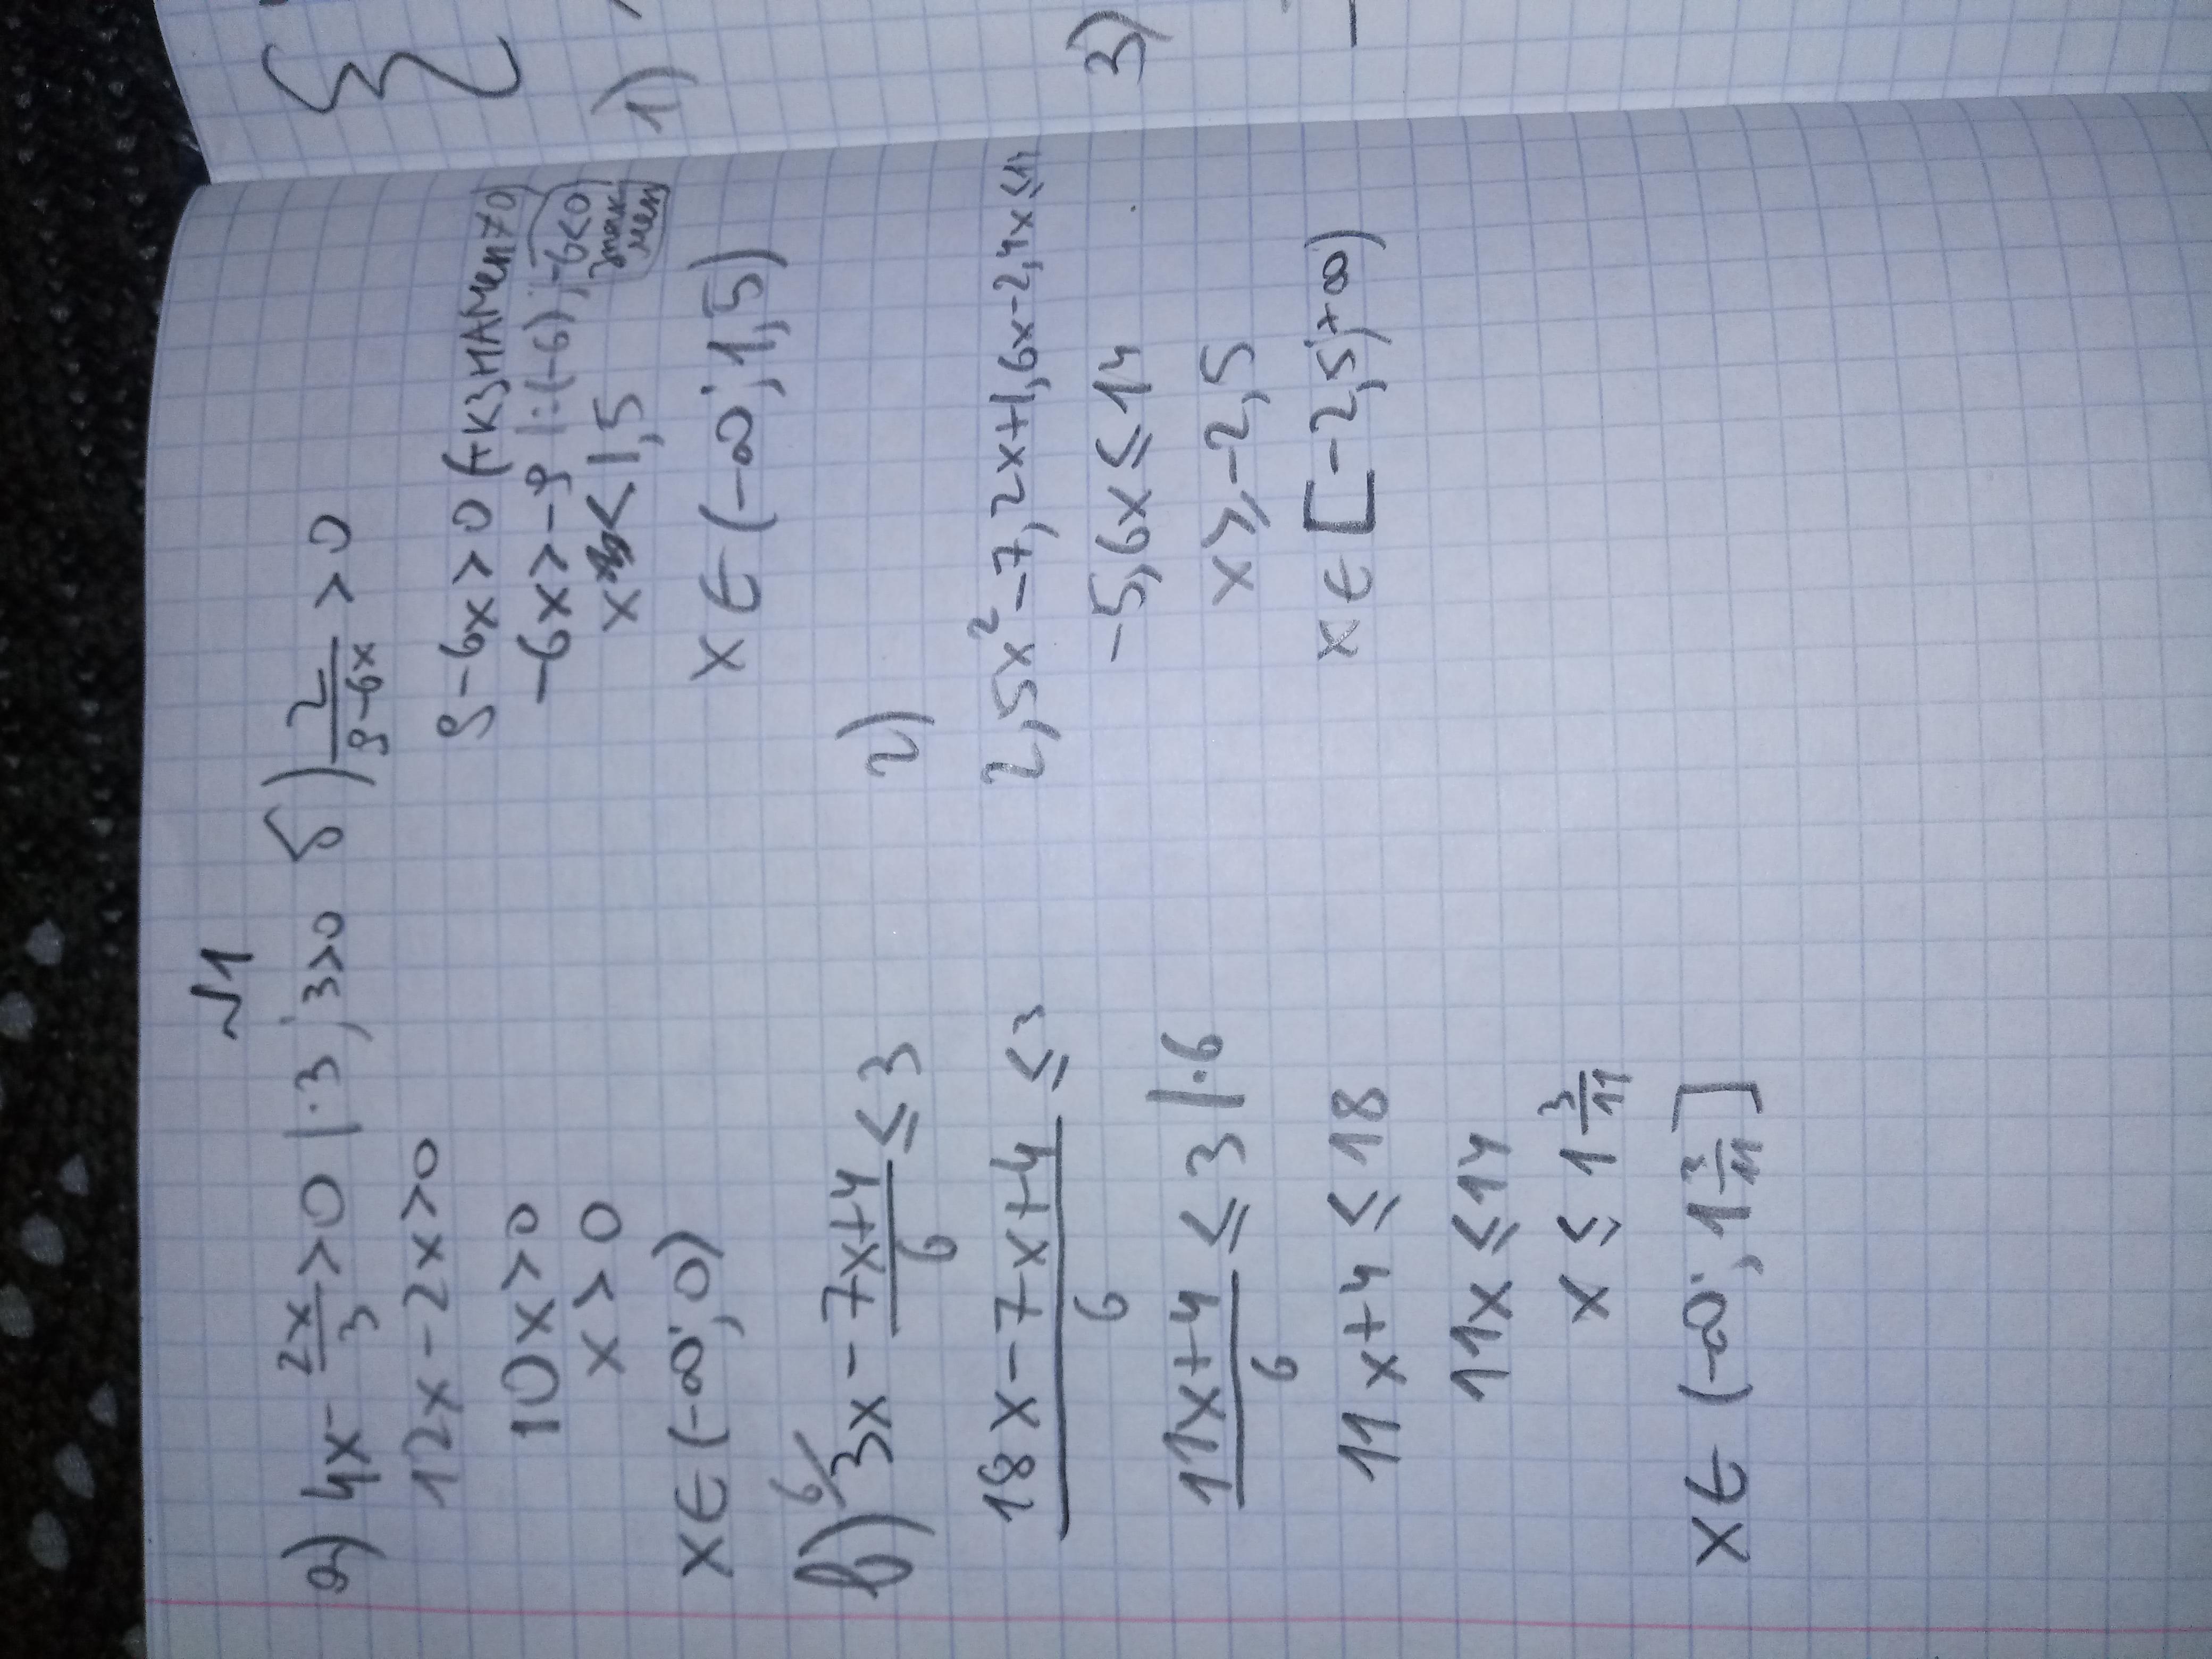 №1
а) 4x - 2x/3 > 0 | · 3 ; 3>0
12x - 2x > 0
10x > 0
x > 0
x ∈ (-∞; 0)
б) 2/(9-6x) > 0
9 - 6x > 0 (т к знамен ≠ 0)
-6x > -9 | : (-6) ; -6<0
знак мен
x < 1,5
x ∈ (-∞; 1,5)
в) 6/ 3x - (7x+4)/6 ≤ 3
(18x - 7x + 4)/6 ≤ 3
(11x+4)/6 ≤ 3 | · 6
11x + 4 ≤ 18
11x ≤ 14
x ≤ 1 3/11
x ∈ (-∞; 1 3/11]
г)
2,5x² - 7,2x + 1,6x - 2,4x ≤ 14
-5,6x ≤ 14
x ≥ -2,5
x ∈ [-2,5; +∞)
1)
3)